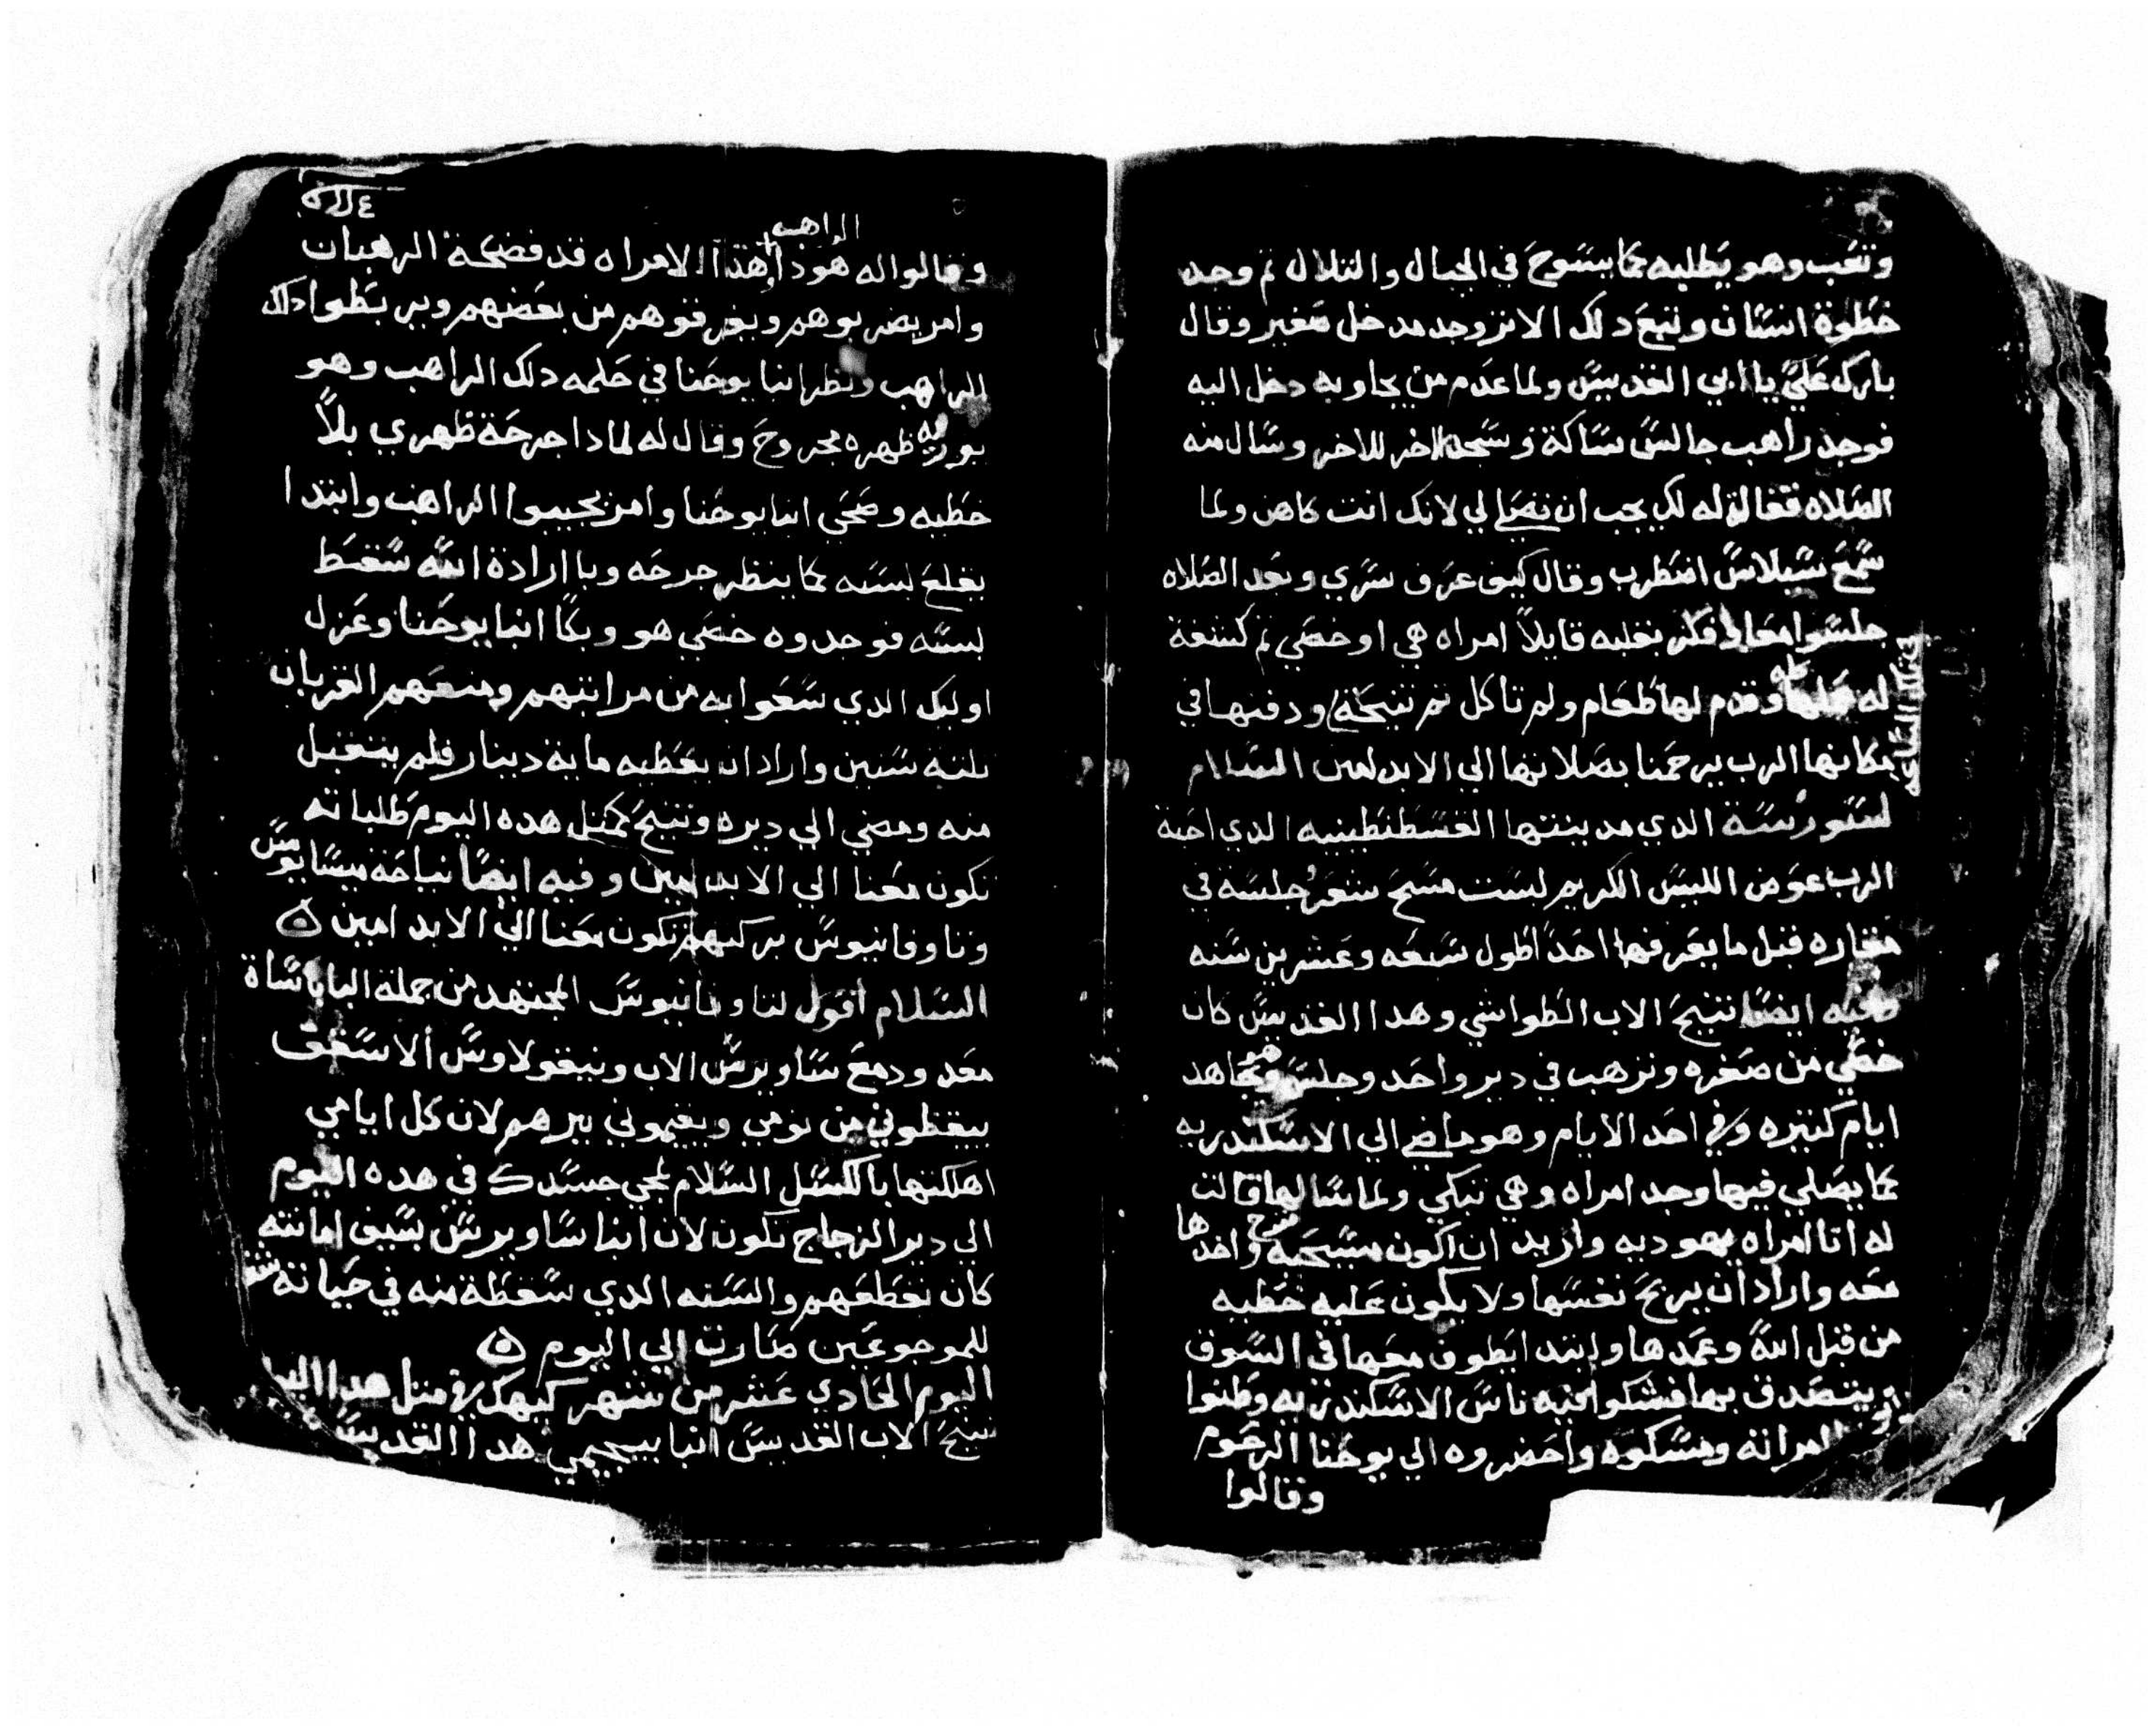 وتعب وهو يطلبه كما يسوح في الجبال والتلال ثم وجد
خطوة انسان وتبع دلك الاثر وجد مدخل صغير وقال
بارك علي يا ابي القديس ولما عدم من يجاوبه دخل اليه
فوجد راهب جالس ساكة وسجد الاخر للاخر وسال منه
الصلاه فقالة له لك يجب ان تصلي لي لانك انت كاهن ولما
سمع سيلاس اضطرب وقال كيف عرف سري وبعد الصلاه
جلسوا معا فكر بقلبه قايلاً امراه هي او خصي ثم كشفة
له وقدم لها طعام ولم تاكل ثم تنيحة ودفنها في
مكانها الرب يرحمنا بصلاتها الي الابد امين السلام
لستورسة الدي مدينتها القسطنطينيه الدي احبة
الرب عوض اللبس الكريم لبست مسح شعر وجلسة في
مغاره قبل ما يعرفها احد اطول سبعه وعشرين سنه
وفيه ايضاً تنيح الاب الطواشي وهدا القديس كان
خصي من صغره وترهب في دير واحد وجلس وهو يجاهد
ايام كتيره وفي احد الايام وهو ماضي الي الاسكندريه
كما يصلي فيها وجد امراه وهي تبكي ولما سالها قالت
له انا امراه يهوديه واريد ان اكون مسيحيه واخدها
معه واراد ان يربح نفسها ولا يكون عليه خطيه
من قبل الله وعمدها وابتدا يطوف معها في السوق
يتصدق بها فشكوا فيه ناس الاسكندريه وظنوا
امراته ومسكوه واحضروه الي يوحنا الرحوم
وقالوا
الراهب
وقالوا له هودا هدا الامراه قد فضحة الرهبان
وامر يضربوهم ويفرقوهم من بعضهم ويربطوا دلك
الراهب ونظر انبا يوحنا في حلمه دلك الراهب وهو
يوريه ظهره مجروح وقال له لمادا جرحة ظهري بلاً
خطيه وصحي انبا يوحنا وامر يجيبوا الراهب وابتدا
يقلع لبسه كما ينظر جرحه وبا ارادة الله سقط
لبسه فوجدوه خصي هو وبكا انبا يوحنا وعزل
اوليك الدي سعوا به من مراتبهم ومنعهم القربان
تلته سنين واراد ان يعطيه ماية دينار فلم يتقبل
منه ومضي الي ديره وتنيح كمتل هده اليوم طلباته
تكون معنا الي الابد امين وفيه ايضاً نياحة بيسايوس
وتاوفانيوس بركتهم تكون معنا الي الابد امين
السلام اقول لتاوفانيوس المجتهد من جملة الباباساة
معد ودمع ساويرس الاب ونيقولاوس الاسقف
ييقظوني من نومي ويقيموني بيرهم لان كل ايامي
اهلكتها باكلسل السلام لمجي جسدك في هده اليوم
الي دير الزجاج تكون لان انبا ساويرس بسيف امانته
كان تقطعهم والسنه الدي سقطة منه في حياته
للموجوعين صارت الي اليوم
اليوم الحادي عشر من شهر كيهك في متل هدا اليو
تنيح الاب القديس انبا بيجيمي هدا القديس